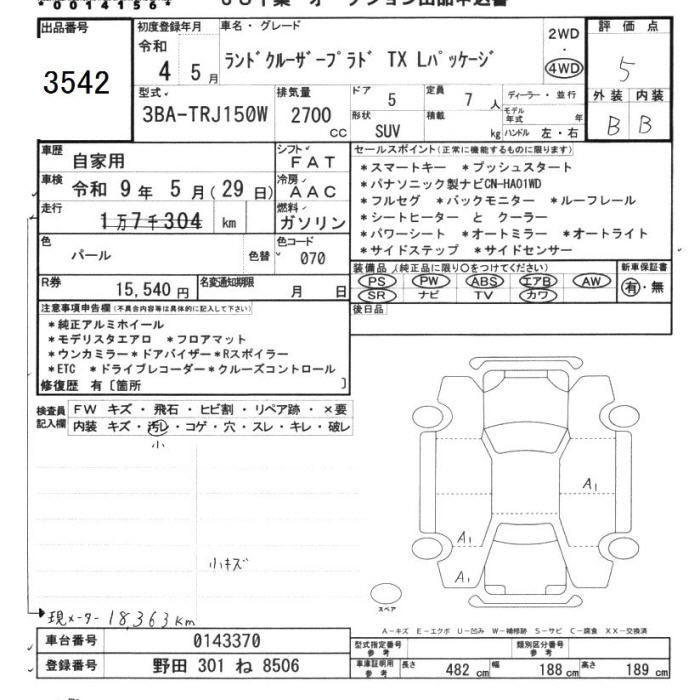 *0014156*
出品番号
3542
初度登録年月
令和
4 5月
車名・グレード
ﾗﾝﾄﾞｸﾙｰｻﾞｰﾌﾟﾗﾄﾞ TX Lﾊﾟｯｹｰｼﾞ
2WD
・
4WD
評価点
5
外装 内装
B B
型式
3BA-TRJ150W
排気量
2700
cc
ドア
5
定員
7 人
形状
SUV
積載
kg
ディーラー・並行
モデル年式 年
ハンドル 左・右
車歴
自家用
シフト
FAT
車検
令和 9年 5月(29日)
冷房
AAC
走行
1万7千304 km
燃料
ガソリン
色
パール
色替
色コード
070
R券
15,540 円
名変通知期限
月 日
セールスポイント(正常に機能するものに限ります)
*スマートキー *プッシュスタート
*パナソニック製ナビCN-HA01WD
*フルセグ *バックモニター *ルーフレール
*シートヒーター と クーラー
*パワーシート *オートミラー *オートライト
*サイドステップ *サイドセンサー
装備品(純正品に限り○をつけてください)
PS PW ABS エアB AW
SR ナビ TV カワ
新車保証書
有・無
後日品
注意事項申告欄(不具合内容等は具体的に記入して下さい)
*純正アルミホイール
*モデリスタエアロ *フロアマット
*ウンカミラー*ドアバイザー*Rスポイラー
*ETC *ドライブレコーダー*クルーズコントロール
修復歴 有〔箇所 〕
検査員記入欄
FW キズ・飛石・ヒビ割・リペア跡・×要
内装 キズ・汚レ・コゲ・穴・スレ・キレ・破レ
小
小キズ
A1
A1
A1
スペア
現メーター 18,363km
A-キズ E-エクボ U-凹み W-補修跡 S-サビ C-腐食 XX-交換済
車台番号
0143370
登録番号
野田 301 ね 8506
型式指定番号
参考
類別区分番号
参考
車庫証明用
参考
長さ 482 cm
幅 188 cm
高さ 189 cm